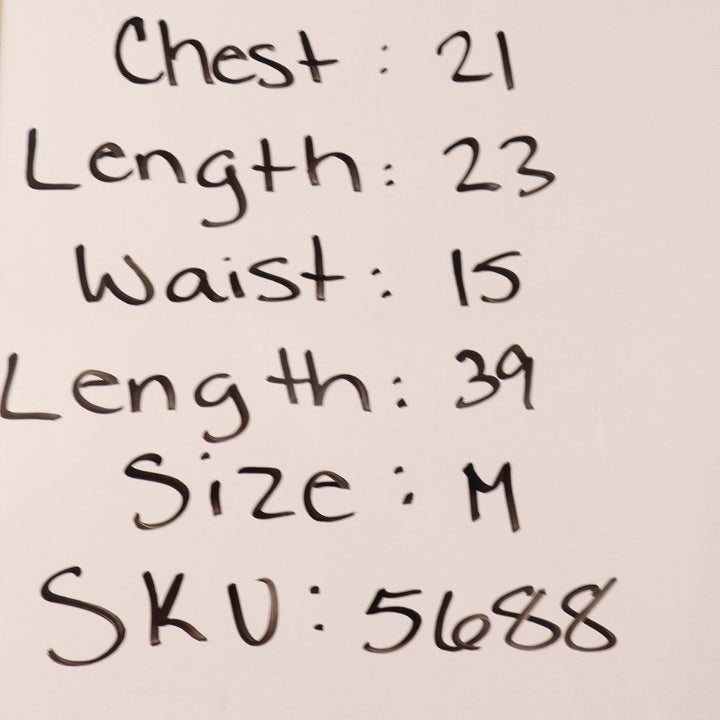 Chest: 21
Length: 23
Waist: 15
Length: 39
Size: M
SKU: 5688